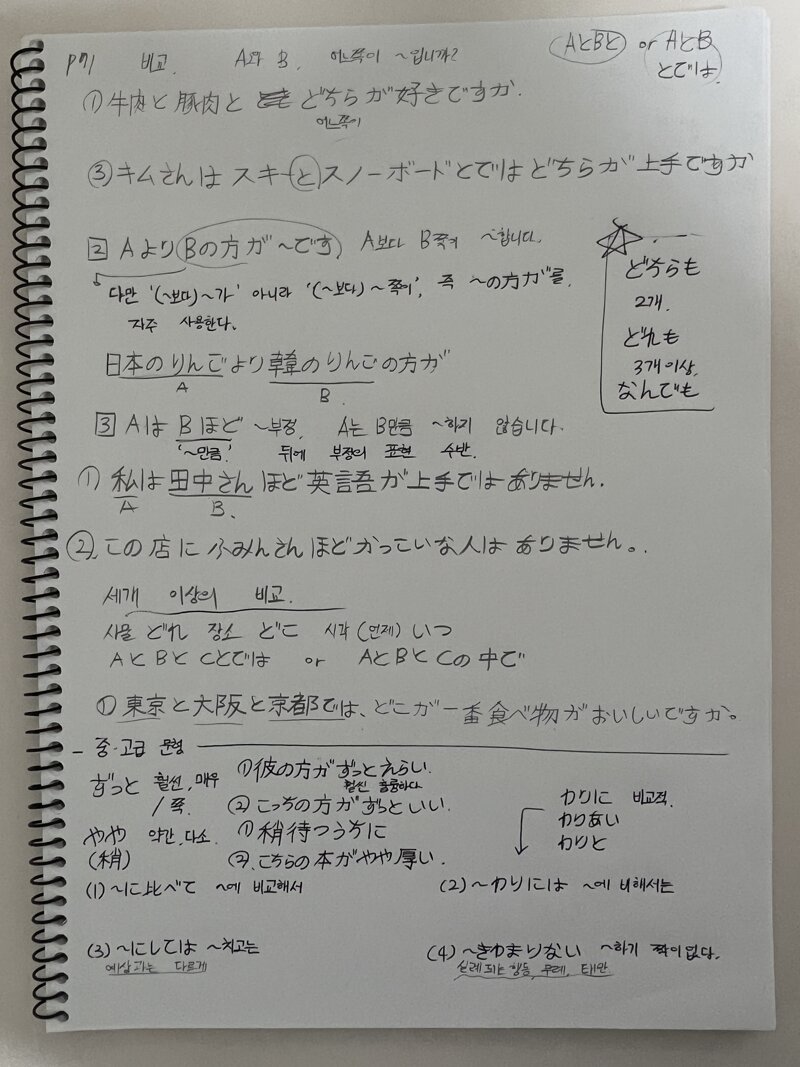 P71 비교. A와 B. 어느쪽이 ~입니까?
AとBと or AとB
とでは
① 牛肉と豚肉と どちらが好きですか.
어느쪽이
③ キムさんは スキーとスノーボードとではどちらが上手ですか
2 AよりBの方が~です, A보다 B쪽이 ~합니다.
다만 '(~보다)~가' 아니라 '(~보다)~쪽이', 즉 ~の方が를.
자주 사용한다.
どちらも
2개.
どれも
3개이상.
なんでも
日本のりんごより韓のりんごの方が
A B
3 Aは Bほど ~부정, A는 B만큼 ~하지 않습니다.
'~만큼' 뒤에 부정의 표현 수반.
① 私は田中さんほど英語吾が上手ではありません.
A B.
② この店に ふみんさんほどかっこいな人は ありません。.
세개 이상의 비교.
사물 どれ 장소 どこ 시각(언제) いつ
AとBとCとでは or AとBとCの中で
① 東京と大阪と京都では、どこが一番食べ物がおいしいですか。
- 중·고급 문형
ずっと 훨씬, 매우
/ 쭉.
① 彼の方がずっとえらい.
훨씬 훌륭하다
② こっちの方がずっといい.
やや 약간, 다소.
(稍)
① 稍待つうちに
②. こちらの本がやや厚い.
わりに 비교적.
わりあい
わりと
(1) ~に比べて ~에 비교해서
(2) ~わりには ~에 비해서는
(3) ~にしては ~치고는
예상과는 다르게
(4) ~きわまりない ~하기 짝이없다.
실례되는행동, 무례, 태만.